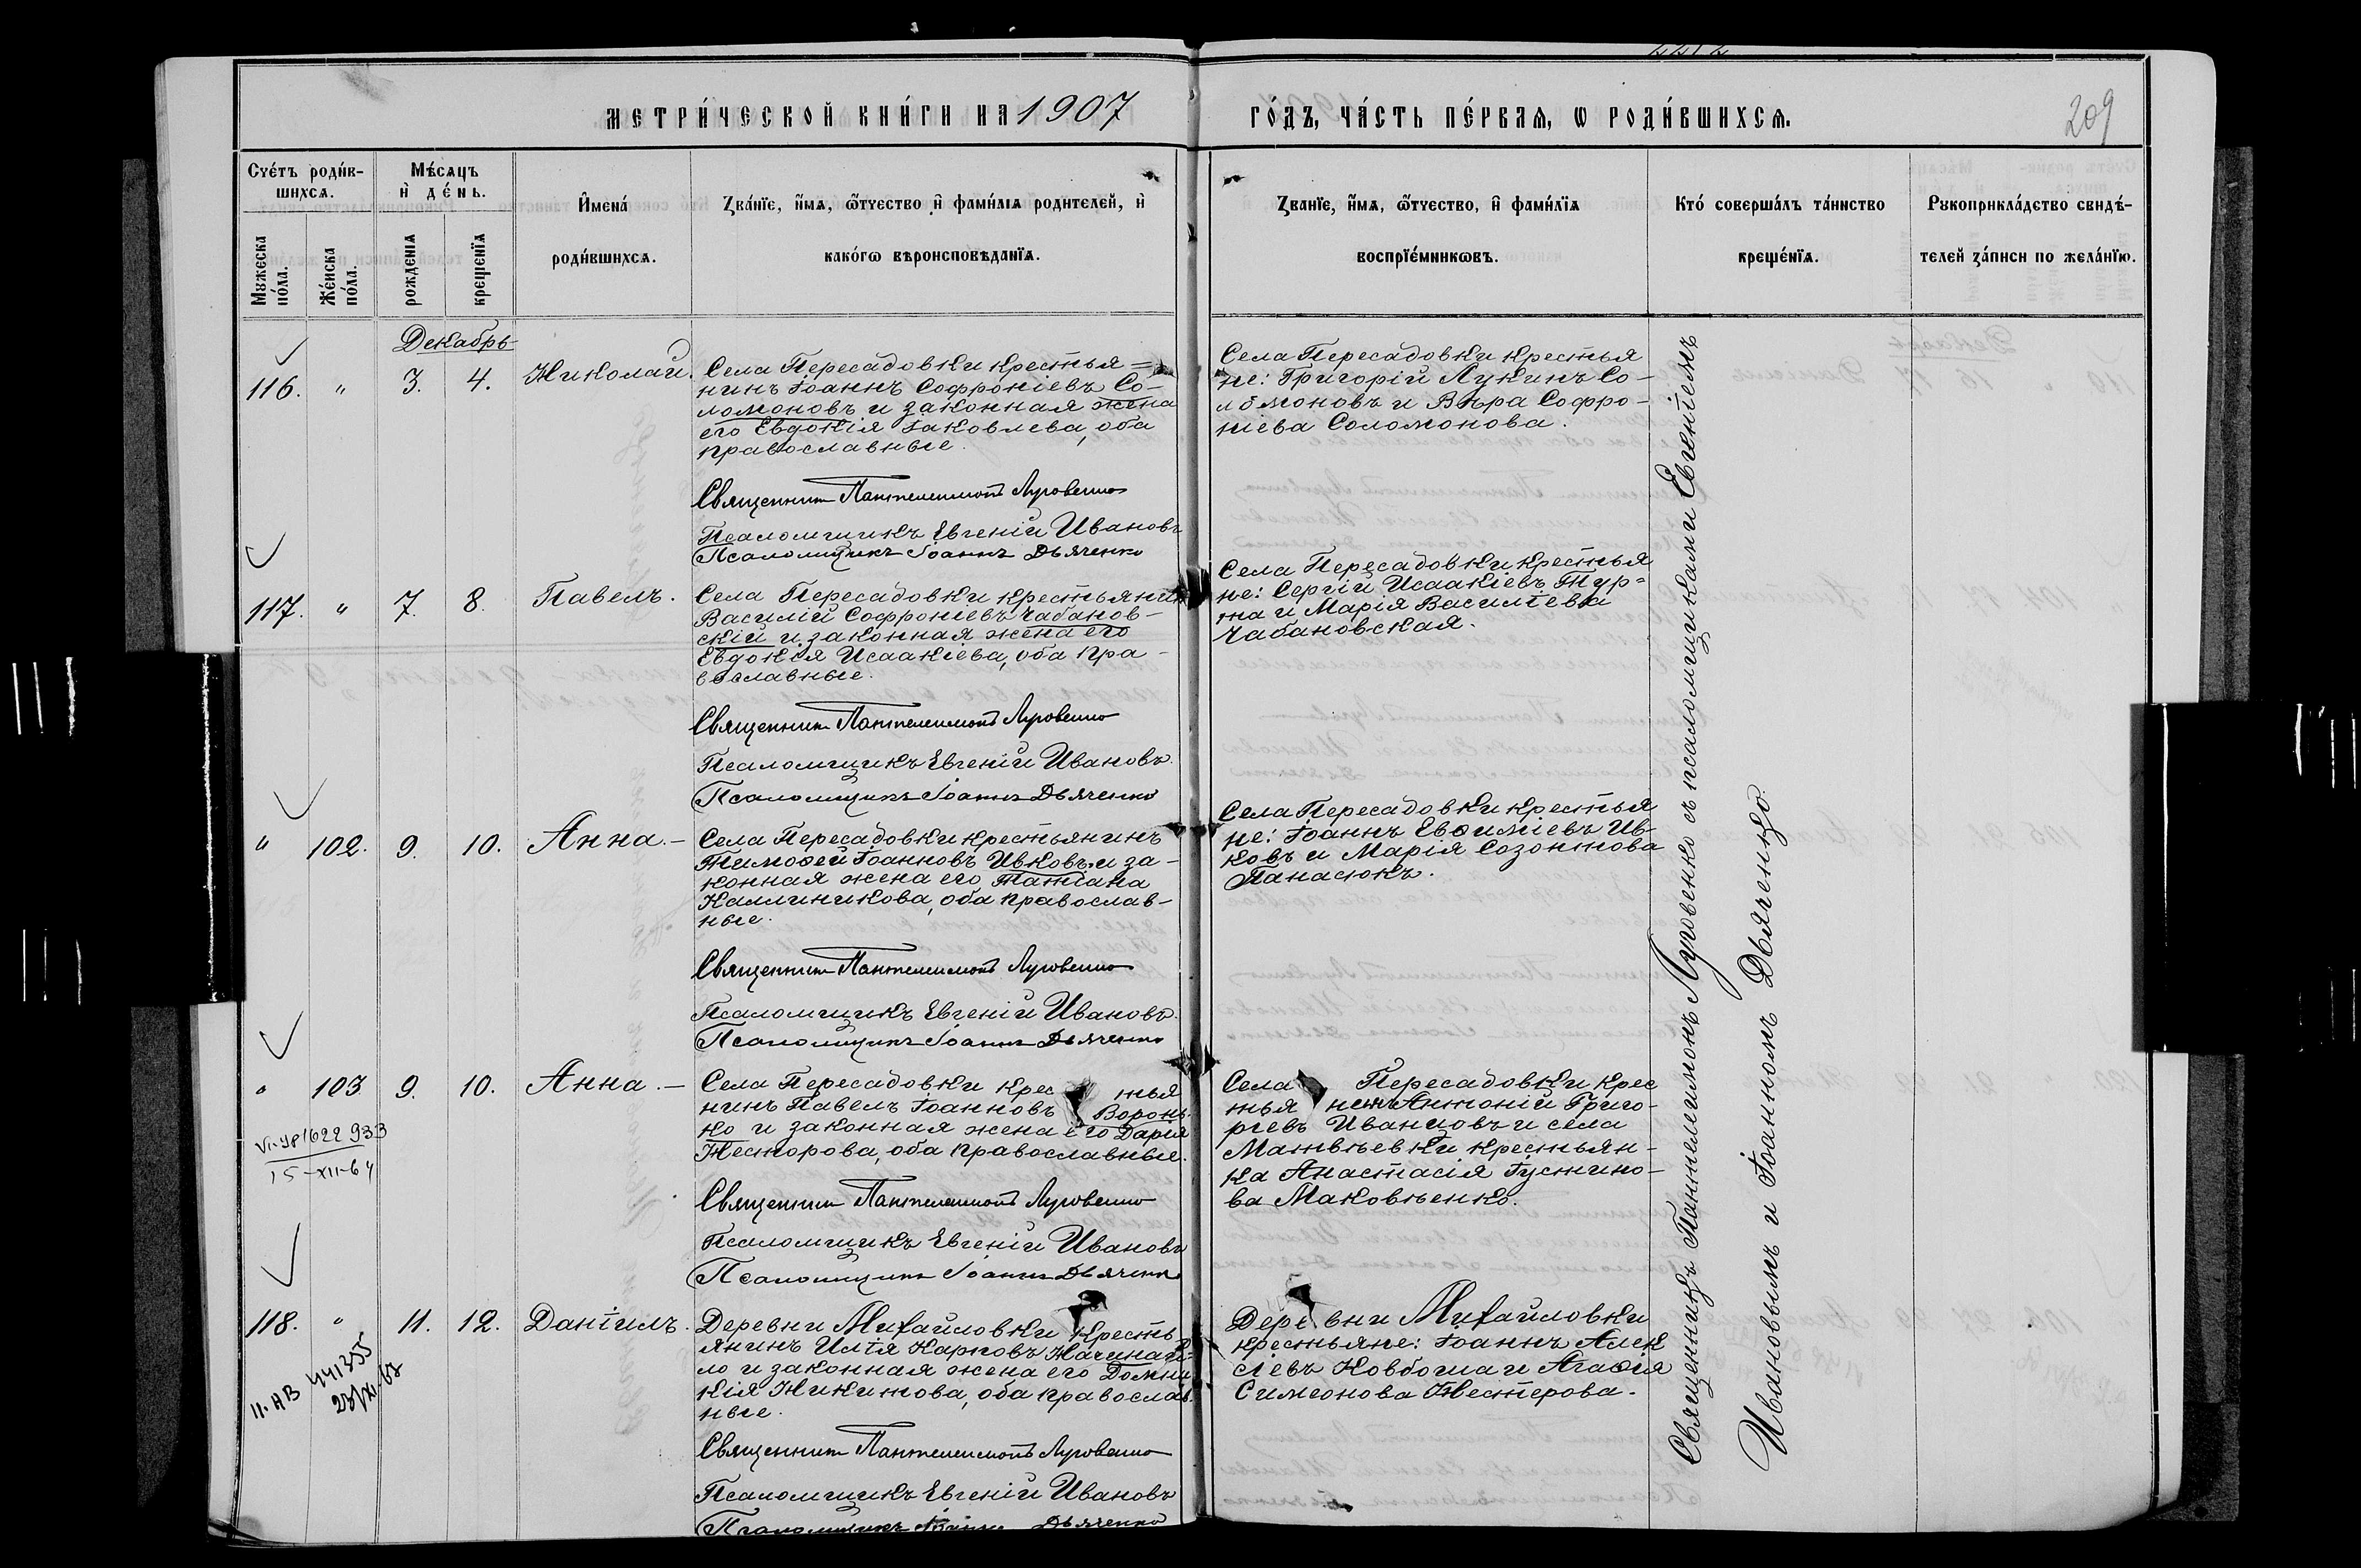 МЕТРИ́ЧЕСКОЙ КНИ́ГИ НА 1907
ГО́ДЪ, ЧА́СТЬ ПЕ́РВАѦ, Ѡ РОДИ́ВШИХСѦ.
209
Счётъ роди́в-
шихсѧ.
Мѣ́сѧцъ
и де́нь.
Мꙋжеска по́ла.
Же́нска по́ла.
рожденїѧ
крещенїѧ
Имена́
роди́вшихсѧ.
Зва́нїе, и́мѧ, ѻ҆́тчество и фами́лїѧ родителей, и
како́гѡ вѣроисповѣданїѧ.
Зва́нїе, и́мѧ, ѻ҆́тчество, и фами́лїѧ
воспрїе́мникѡвъ.
Кто́ соверша́лъ та́инство
креще́нїѧ.
Рꙋкоприкла́дство свидѣ́-
телей за́писи по жела́нїю.
Декабрь
116. " 3. 4. Николай.
Села Пересадовки крестья=
нинъ Іоаннъ Софроніевъ Со-
ломоновъ и законная жена
его Евдокія Іаковлева, оба
православные.
Священникъ Пантелеимонъ Луговенко
Псаломщикъ Евгеній Ивановъ
Псаломщикъ Іоаннъ Дьяченко
Села Пересадовки крестья
не: Григорій Лукинъ Со-
ломоновъ и Вѣра Софро-
ніева Соломонова.
117. " 7. 8. Павелъ.
Села Пересадовки крестьянин
Василій Софроніевъ Чабанов-
скій и законная жена его
Евдокія Исаакіева, оба пра-
вославные.
Священникъ Пантелеимонъ Луговенко
Псаломщикъ Евгеній Ивановъ.
Псаломщикъ Іоаннъ Дьяченко
Села Пересадовки крестья
не: Сергій Исаакіевъ Тур=
та и Марія Василіева
Чабановская.
" 102. 9. 10. Анна.-
Села Пересадовки крестьянинъ
Тимоѳей Іоанновъ Ивковъ и за-
конная жена его Татіана
Каллиникова, оба православ-
ные.
Священникъ Пантелеимонъ Луговенко
Псаломщикъ Евгеній Ивановъ.
Псаломщикъ Іоаннъ Дьяченко
Села Пересадовки крестья
не: Іоаннъ Евѳиміевъ Ив-
ковъ и Марія Созонтова
Панасюкъ.
" 103 9. 10. Анна.-
Села Пересадовки крес тья
нинъ Павелъ Іоанновъ Воронь-
ко и законная жена его Дарія
Несторова, оба православные.
Священникъ Пантелеимонъ Луговенко
Псаломщикъ Евгеній Ивановъ
Псаломщикъ Іоаннъ Дьяченко
Села Пересадовки крес
тья не: Антоній Григо-
рьевъ Иванцовъ и села
Матвѣевки крестьян-
ка Анастасія Іустино-
ва Маковѣенко.
VI-ЯР 622 933
15-XII-64
118. " 11. 12. Даніилъ.
Деревни Михайловки кресть
янинъ Илія Карповъ Начинай-
ло и законная жена его Домни
кія Никитова, оба православ.
ные.
Священникъ Пантелеимонъ Луговенко
Псаломщикъ Евгеній Ивановъ
Псаломщикъ Іоаннъ Дьяченко
Дере вни Михайловки
крестьяне: Іоаннъ Алек
сіевъ Ковбоша и Агаѳія
Симеонова Нестерова.
II-АВ 441355
Священникъ Пантелеимонъ Луговенко съ псаломщиками Евгеніемъ
Ивановымъ и Іоанномъ Дьяченко.